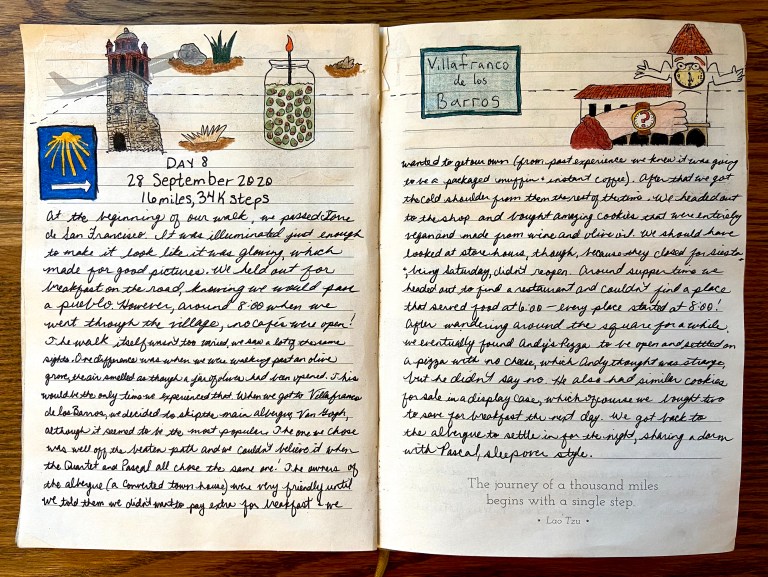 DAY 8
28 September 2020
16 miles, 34K steps
At the beginning of our walk, we passed Torre
de San Francisco. It was illuminated just enough
to make it look like it was glowing, which
made for good pictures. We held out for
breakfast on the road, knowing we would pass
a pueblo. However, around 8:00 when we
went through the village, no cafes were open!
The walk itself wasn't too varied, we saw a lot of the same
sights. One difference was when we were walking past an olive
grove, the air smelled as though a jar of olives had been opened. This
would be the only time we experienced that. When we got to Villafranco
de los Barros, we decided to skip the main albergue, Van Gogh,
although it seemed to be the most popular. The one we chose
was well off the beaten path and we couldn't believe it when
the Quartet and Pascal all chose the same one. The owners of
the albergue (a converted town house) were very friendly until
we told them we didn't want to pay extra for breakfast - we
Villafranco
de los
Barros
?
wanted to get our own (from past experience we knew it was going
to be a packaged muffin + instant coffee). After that we got
the cold shoulder from them the rest of the time. We headed out
to the shop and bought amazing cookies that were entirely
vegan and made from wine and olive oil. We should have
looked at store hours, though, because they closed for siesta
+ being Saturday, didn't reopen. Around supper time we
headed out to find a restaurant and couldn't find a place
that served food at 6:00 — every place started at 8:00!
After wandering around the square for a while,
we eventually found Andy's Pizza to be open and settled on
a pizza with no cheese, which Andy thought was strange,
but he didn't say no. He also had similar cookies
for sale in a display case, which of course we bought two
to save for breakfast the next day. We got back to
the albergue to settle in for the night, sharing a dorm
with Pascal, sleepover style.
The journey of a thousand miles
begins with a single step.
• Lao Tzu •